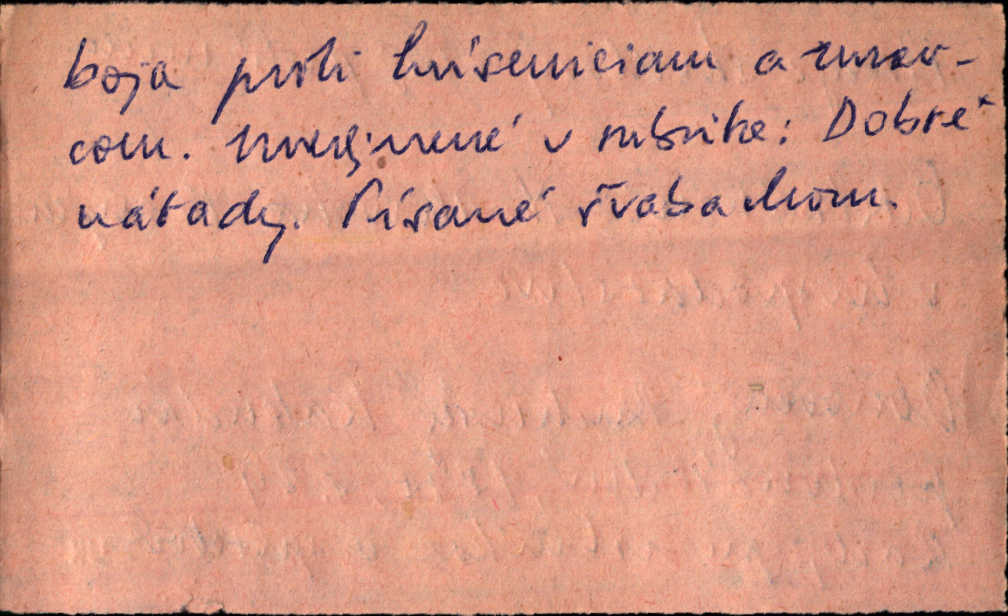 boja proti húseniciam a mrav-
com. Uverejnené v rubrike: Dobré
nápady. Písané švabachom.